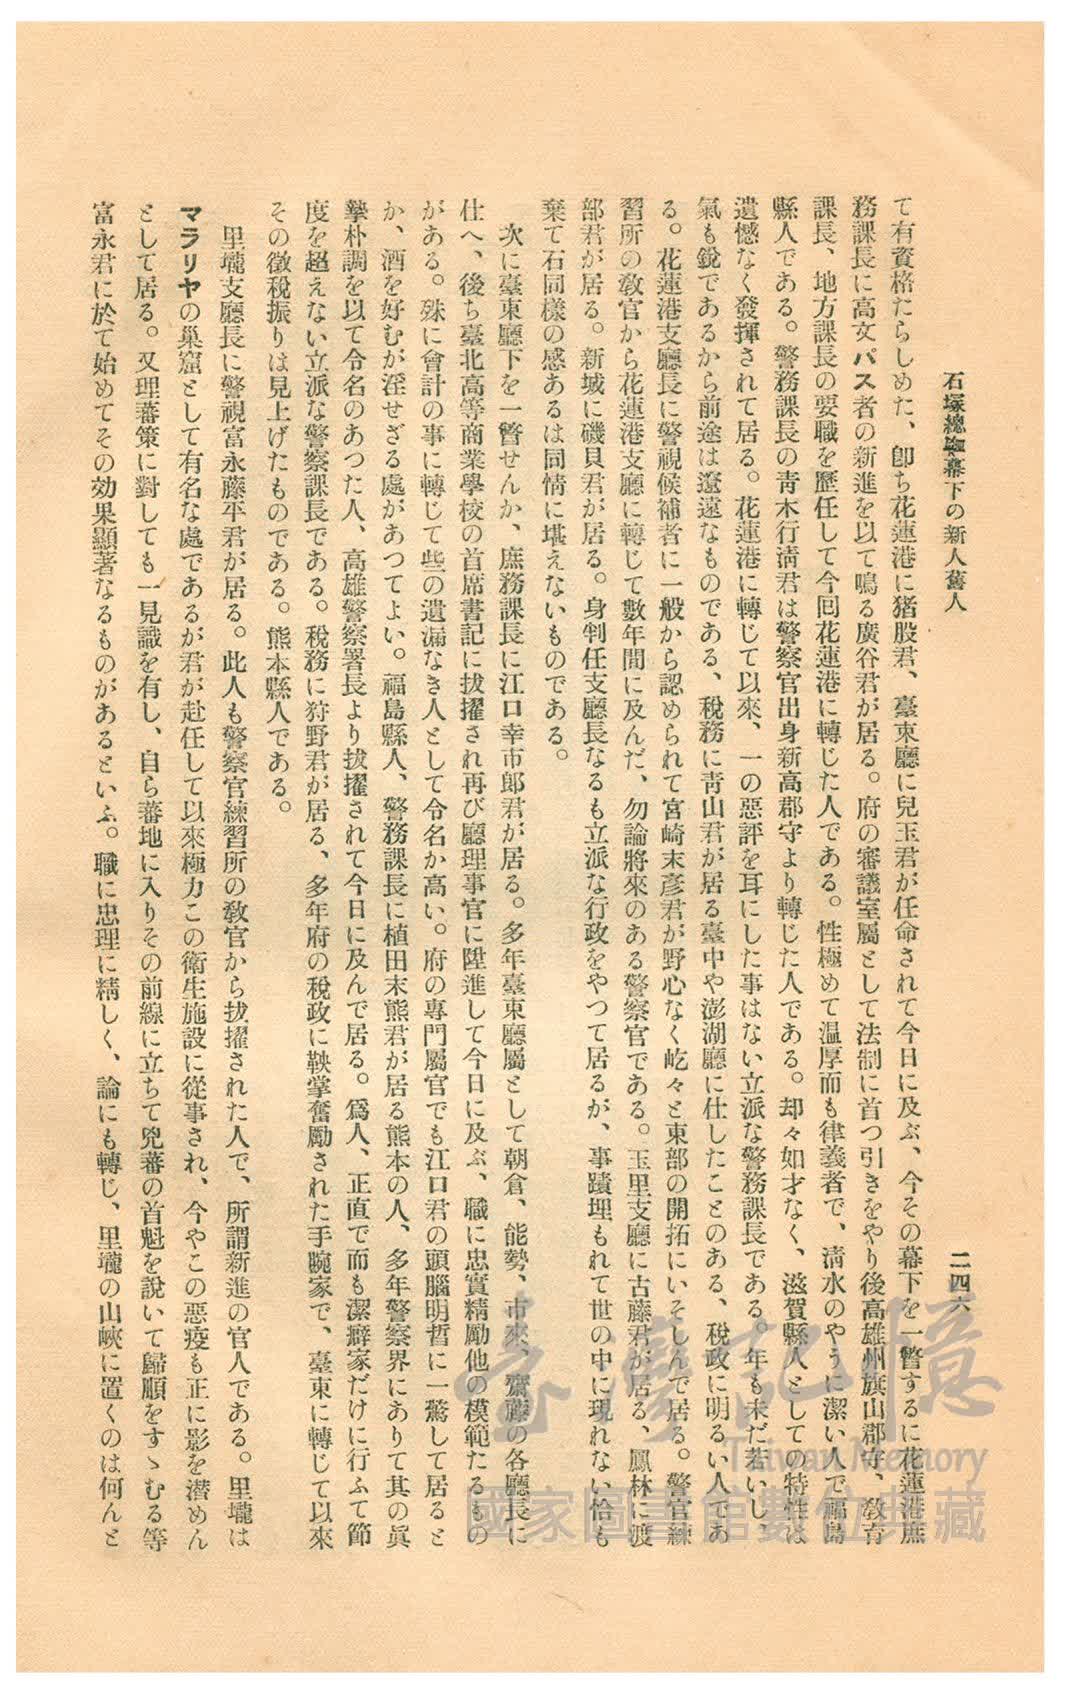 石塚總督幕下の新人舊人
二四六
て有資格たらしめた、卽ち花蓮港に猪股君、臺東廳に兒玉君が任命されて今日に及ぶ、今その幕下を一瞥するに花蓮港庶
務課長に高文パス者の新進を以て鳴る廣谷君が居る。府の審議室屬として法制に首つ引きをやり後高雄州旗山郡守、敎育
課長、地方課長の要職を歷任して今回花蓮港に轉じた人である。性極めて温厚而も律義者で、淸水のやうに潔い人で福島
縣人である。警務課長の靑木行淸君は警察官出身新高郡守より轉じた人である。却々如才なく、滋賀縣人としての特性は
遺憾なく發揮されて居る。花蓮港に轉じて以來、一の惡評を耳にした事はない立派な警務課長である。年も未だ若いし、
氣も銳であるから前途は遼遠なものである、稅務に靑山君が居る臺中や澎湖廳に仕したことのある、稅政に明るい人であ
る。花蓮港支廳長に警視候補者に一般から認められて宮崎末彥君が野心なく屹々と東部の開拓にいそしんで居る。警官練
習所の敎官から花蓮港支廳に轉じて數年間に及んだ、勿論將來のある警察官である。玉里支廳に古藤君が居る、鳳林に渡
部君が居る。新城に磯貝君が居る。身判任支廳長なるも立派な行政をやつて居るが、事蹟埋もれて世の中に現れない恰も
棄て石同樣の感あるは同情に堪えないものである。
次に臺東廳下を一瞥せんか、庶務課長に江口幸市郎君が居る。多年臺東廳屬として朝倉、能勢、市來、齋藤の各廳長に
仕へ、後ち臺北高等商業學校の首席書記に拔擢され再び廳理事官に陞進して今日に及ぶ、職に忠實精勵他の模範たるもの
がある。殊に會計の事に轉じて些の遺漏なき人として令名か高い。府の專門屬官でも江口君の頭腦明晢に一驚して居ると
か、酒を好むが淫せざる處があつてよい。福島縣人、警務課長に植田末熊君が居る熊本の人、多年警察界にありて其の眞
摯朴調を以て令名のあつた人、高雄警察署長より拔擢されて今日に及んで居る。爲人、正直で而も潔癖家だけに行ふて節
度を超えない立派な警察課長である。稅務に狩野君が居る、多年府の稅政に鞅掌奮勵された手腕家で、臺東に轉じて以來
その徵稅振りは見上げたものである。熊本縣人である。
里壠支廳長に警視富永藤平君が居る。此人も警察官練習所の敎官から拔擢された人で、所謂新進の官人である。里壠は
マラリヤの巢窟として有名な處であるが君が赴任して以來極力この衛生施設に從事され、今やこの惡疫も正に影を潜めん
として居る。又理蕃策に對しても一見識を有し、自ら蕃地に入りその前線に立ちて兇蕃の首魁を說いて歸順をすゝむる等
富永君に於て始めてその効果顯著なるものがあるといふ。職に忠理に精しく、論にも轉じ、里壠の山峽に置くのは何んと
臺灣記憶
Taiwan Memory
國家圖書館數位典藏